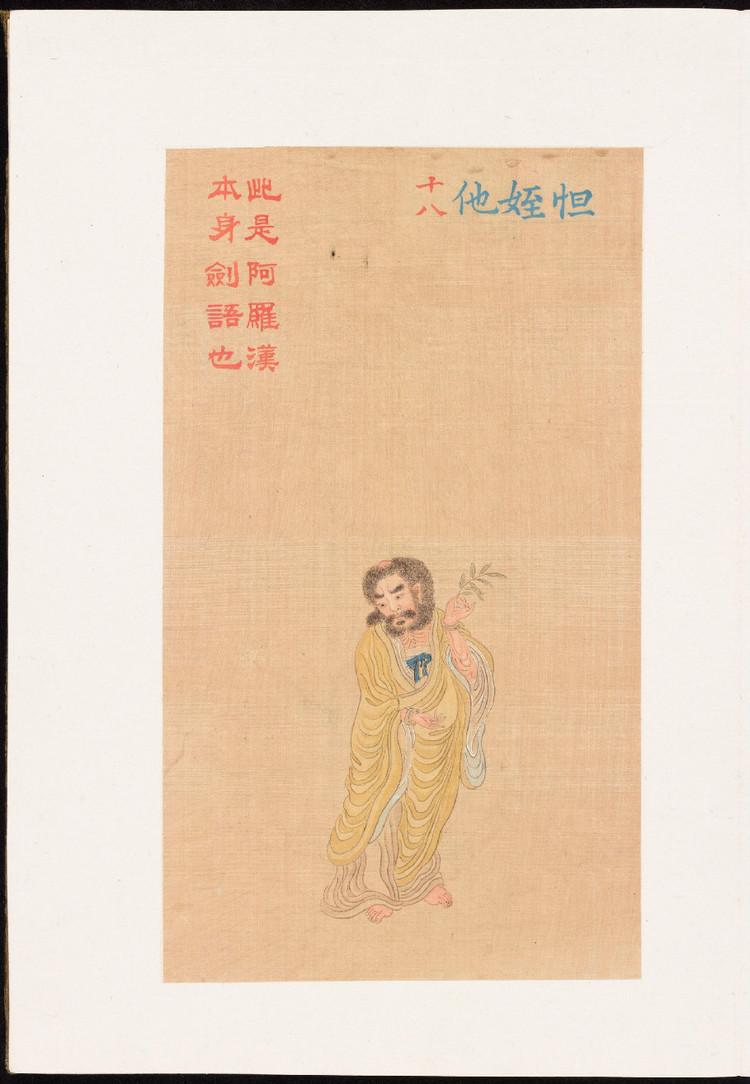 怛姪他
十八
此是阿羅漢
本身劍語也